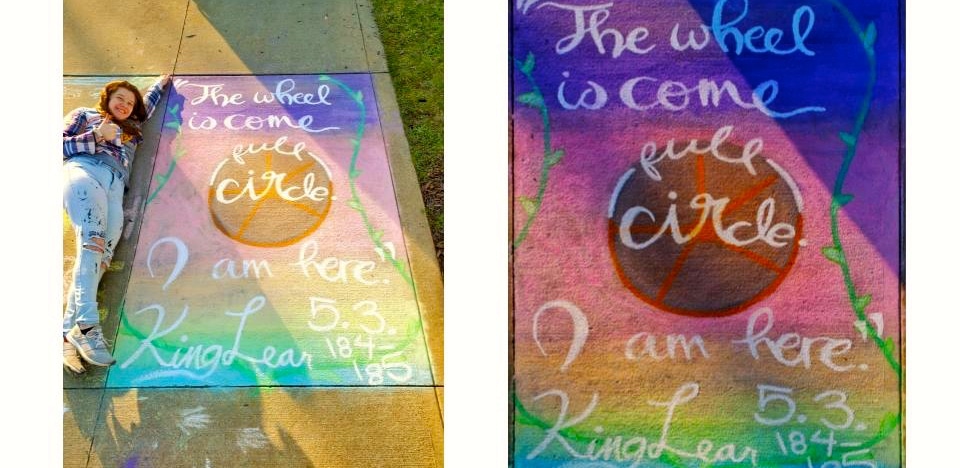 "The wheel
is come
full
circle.
I am here."
King Lear
5.3.
184-
185
"The wheel
is come
full
circle.
I am here."
King Lear
5.3.
184-
185